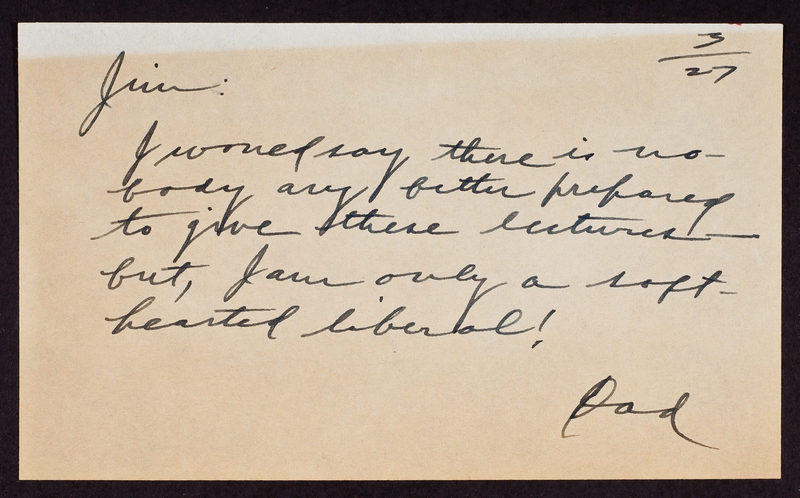 3/27
Jim:
I would say there is no-
body any better prepared
to give these lectures—
but, I am only a soft-
hearted liberal!
Dad